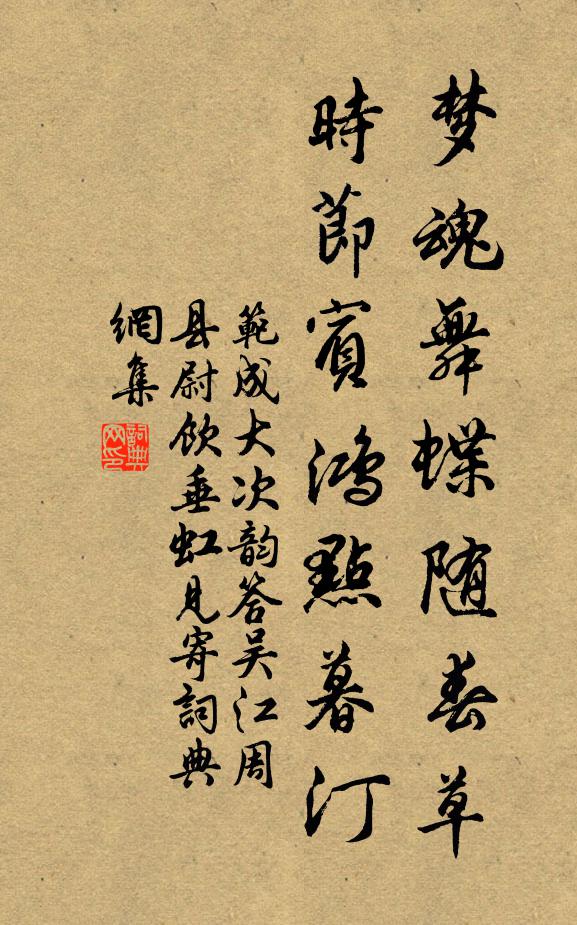 梦魂舞蝶随春草
時節賓鴻點暮汀
範成大次韵答吴江周
县尉飲垂虹見寄詞典
網集
詞典
网印